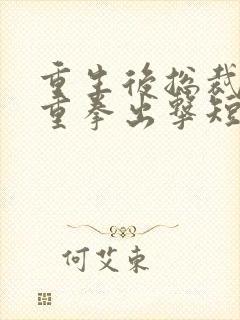 重生後總裁
重拳出擊短
何艾東